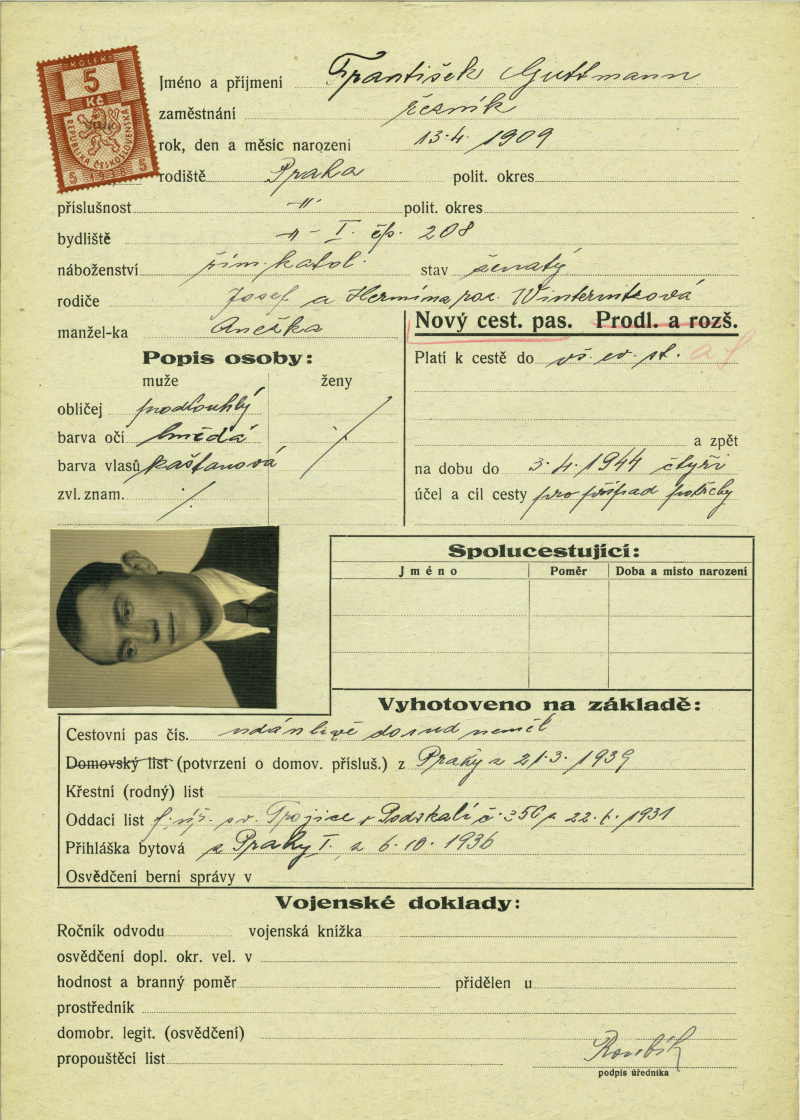 KOLEK
5
Kč
REPUBLIKA ČESKOSLOVENSKÁ
5 1938 5
Jméno a příjmení František Guttmann
zaměstnání řezník
rok, den a měsíc narození 13.4. 1909
rodiště Praha polit. okres
příslušnost -"- polit. okres
bydliště -"- I. čp. 208
náboženství řím. katol. stav ženatý
rodiče Josef a Hermína roz. Winternitzová
manžel-ka Anežka
Nový cest. pas. Prodl. a rozš.
Popis osoby:
muže ženy
obličej prodlouhlý
barva očí hnědá
barva vlasů kaštanová
zvl. znam. ./.
Platí k cestě do vš. ev. st.
a zpět
na dobu do 3.4. 1944 čtyři
účel a cíl cesty pro případ potřeby
Spolucestující:
Jméno Poměr Doba a místo narození
Vyhotoveno na základě:
Cestovní pas čís. udánlivě dosud neměl
Domovský list (potvrzení o domov. přísluš.) z Prahy z 21.3. 1939
Křestní (rodný) list
Oddací list f. úř. sv. Trojice v Podskalí č. 350 z 1931
Přihláška bytová z Prahy I. z 6.10. 1936
Osvědčení berní správy v
Vojenské doklady:
Ročník odvodu vojenská knížka
osvědčení dopl. okr. vel. v
hodnost a branný poměr přidělen u
prostředník
domobr. legit. (osvědčení)
propouštěcí list
podpis úředníka